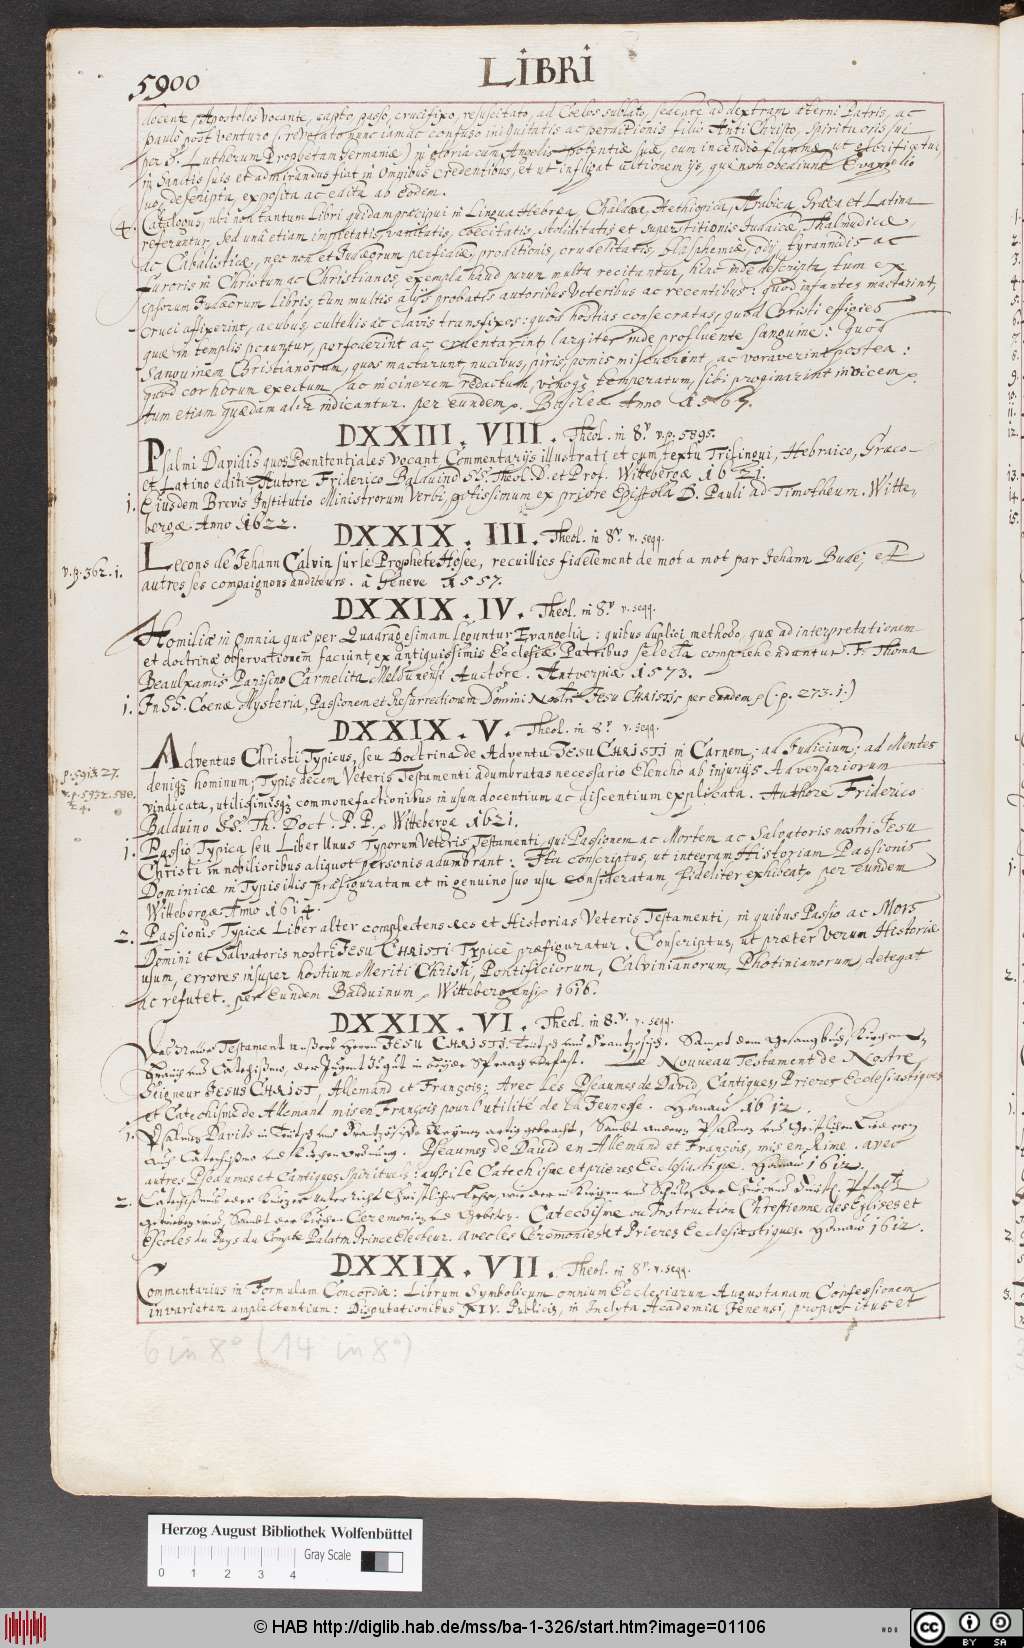 5900
LIBRI
docente, Apostolos vocante, capto passo, crucifixo, resuscitato, ad Coelos sublato, sedente ad dextram aeterni Patris, ac
paulo post venturo (revelato nunc iam ac confuso iniquitatis ac perditionis filio Anti Christo, Spiritu oris sui
per D. Lutherum Prophetam Germaniae) in gloria cum Angelis potentiae suae, cum incendio flammae, ut glorificetur
in Sanctis suis et admirandus fiat in omnibus credentibus, et ut infligat ultionem ijs, qui non obediunt Evangelio
suo, descripta, exposita ac edita ab eodem.
4. Catalogus, ubi non tantum Libri quidam praecipui in Lingua Hebraea, Chaldaea, Aethiopica, Arabica, Graeca et Latina
referuntur, sed una etiam impietatis, vanitatis, coecitatis, stoliditatis et superstitionis Judaicae, Thalmudicae,
ac Cabalisticae, nec non et Judaeorum perfidiae, proditionis, crudelitatis, blasphemiae, odij, tyrannidis ac
furoris in Christum ac Christianos, exempla haud parum multa recitantur, hinc inde descripta, tum ex
ipsorum Judaeorum libris, tum multis alijs probatis autoribus veteribus ac recentibus: quod infantes mactarint,
cruci affixerint, acubus, cultellis ac clavis transfixos: quod hostias consecratas, quod Christi effigies
quae in templis ponuntur, perfoderint ac cruentarint, largiter inde profluente sanguine: Quod
Sanguinem Christianorum, quos mactarunt, nucibus, piris, pomis miscuerint, ac voraverint postea:
quod cor horum exectum ac in cinerem redactum, vinoque temperatum, sibi propinarint invicem p.
tum etiam quaedam alia indicantur. per eundem p. Basileae Anno 1567.
DXXIII. VIII. Theol. in 8º. v. p. 5895.
Psalmi Davidis quos Poenitentiales vocant Commentarijs illustrati et cum textu Trilingui, Hebraico, Graeco-
et Latino editi Autore Friderico Balduino SS. Theol. D. et Prof. Wittebergae 1621.
1. Eiusdem Brevis Institutio Ministrorum Verbi, potissimum ex priore Epistola D. Pauli ad Timotheum. Witte-
bergae Anno 1622.
DXXIX. III. Theol. in 8º. v. seqq.
v. p. 362. 1. Lecons de Jehann Calvin sur le Prophete Hosee, recuillies fidelement de mot a mot par Jehann Bude; et
autres ses compaignons auditeurs. à Geneve 1557.
DXXIX. IV. Theol. in 8º. v. seqq.
Homiliae in omnia quae per Quadragesimam leguntur Evangelia: quibus duplici methodo, quae ad interpretationem
et doctrinae observationem faciunt, ex antiquissimis Ecclesiae Patribus selecta comprehenduntur. F. Thoma
Beaulxamis Parisino Carmelita Meldunensi Auctore. Antverpiae 1573.
1. In SS. Coenae Mysteria, Passionem et Resurrectionem Domini Nostri Jesu Christi per eundem p (. p. 273. 1.)
DXXIX. V. Theol. in 8º. v. seqq.
Adventus Christi Typicus, seu Doctrina de Adventu Jesu Christi in Carnem; ad Judicium; ad Mentes
denique hominum; Typis decem Veteris Testamenti adumbratas necessario Elencho ab injurijs Adversariorum
vindicata, utilissimisque commonefactionibus in usum docentium ac discentium explicata. Authore Friderico
Balduino SS. Th. Doct. P. P. Wittebergae 1621.
1. Passio Typica seu Liber Unus Typorum Veteris Testamenti, qui Passionem ac Mortem ac Salvatoris nostri Jesu
Christi in nobilioribus aliquot personis adumbrant: Ita conscriptus, ut integram Historiam Passionis
Dominicae in Typis illis praefiguratam et in genuino suo usu consideratam, fideliter exhibeat. per eundem
Wittebergae. Anno 1614.
2. Passionis Typicae Liber alter complectens res et Historias Veteris Testamenti, in quibus Passio ac Mors
Domini et Salvatoris nostri Jesu Christi Typice praefiguratur. Conscriptus, ut praeter verum Historiae
usum, errores insuper hostium Meriti Christi, Pontificiorum, Calvinianorum, Photinianorum, detegat
ac refutet. per Eundem Balduinum p Wittebergensi 1616.
DXXIX. VI. Theol. in 8º. v. seqq.
Das Newe Testament unsers Herren Jesu Christi, Teutsch und Frantzösisch. Sampt dem Gesangbuch, Kirchen
und Catechismo, der Jugent zu gut in beyde Spraach verfast. Le Nouveau Testament de Nostre
Seigneur Jesus Christ, Allemand et François: Avec les Pseaumes de David, Cantiques, Prieres Ecclesiastiques
et Catechisme de Allemand mis en François pour l'utilité de la Jeunesse. Hanaw 1612.
1. Psalmen Davids in Teutsch und Frantzösische Reymen artig gebracht, Sambt andern Psalmen und Geistlichen Liedern
auch Catechismo und Kirchen ordnung. Pseaumes de David en Allemand et François, mis en Rime. avec
autres Pseaumes et Cantiques Spirituels: aussi le Catechisme et prieres Ecclesiastique. Hanaw 1612.
2. Catechismus oder Kurtzer Unterricht Christlicher Lehr, wie der in Kirchen und Schulen der Churfürstlichen Pfaltz
getrieben wird, Sambt der Kirchen Ceremonien und Gebeten. Catechisme ou Instruction Chrestienne des Eglises et
Escoles du Pays du Compte Palatin Prince Electeur. avec les Ceremonies et Prieres Ecclesiastiques. Hanaw 1612.
DXXIX. VII. Theol. in 8º. v. seqq.
Commentarius in Formulam Concordiae: Librum Symbolicum omnium Ecclesiarum Augustanam Confessionem
invariatam amplectentium: Disputationibus XIV. Publicis, in Inclyta Academia Jenensi, propositus et
6 in 8º (14 in 8º)
Herzog August Bibliothek Wolfenbüttel
Gray Scale
0 1 2 3 4
© HAB http://diglib.hab.de/mss/ba-1-326/start.htm?image=01106
CC BY SA